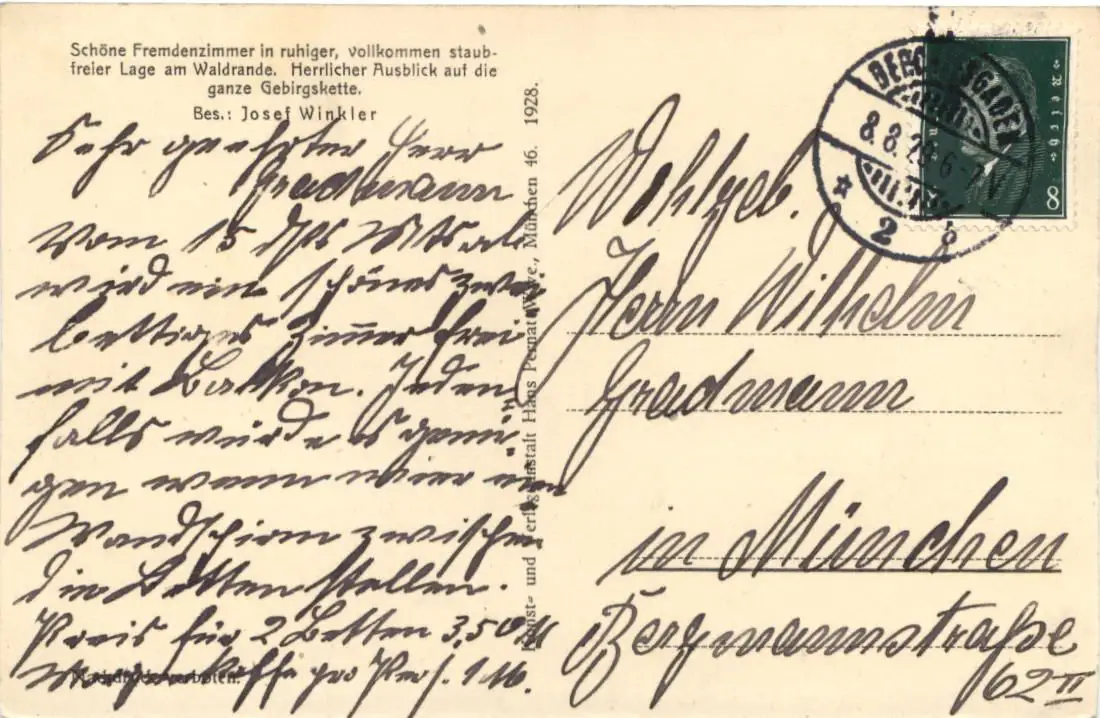 Schöne Fremdenzimmer in ruhiger, vollkommen staub-
freier Lage am Waldrande. Herrlicher Ausblick auf die
ganze Gebirgskette.
Bes.: Josef Winkler
Sehr geehrter Herr
Gradmann
Vom 15 dss Mts ab
wird ein schönes zwei
bettiges Zimmer frei
mit Balkon. Jeden
falls würde es genü
gen wenn wier ein
Wandschirm zwischen
die Betten stellen.
Preis für 2 Betten 3,50 M
kaffe pro Pers. 1 M.
Nachdruck verboten.
Kunst- und Verlagsanstalt Hans Pernat Wwe., München 46. 1928.
BERCHTESGADEN
8.8.29.6-7V
* 2 b
8
Wohlgeb.
Herrn Wilhelm
Gradmann
in München
Bergmannstraße
62 II